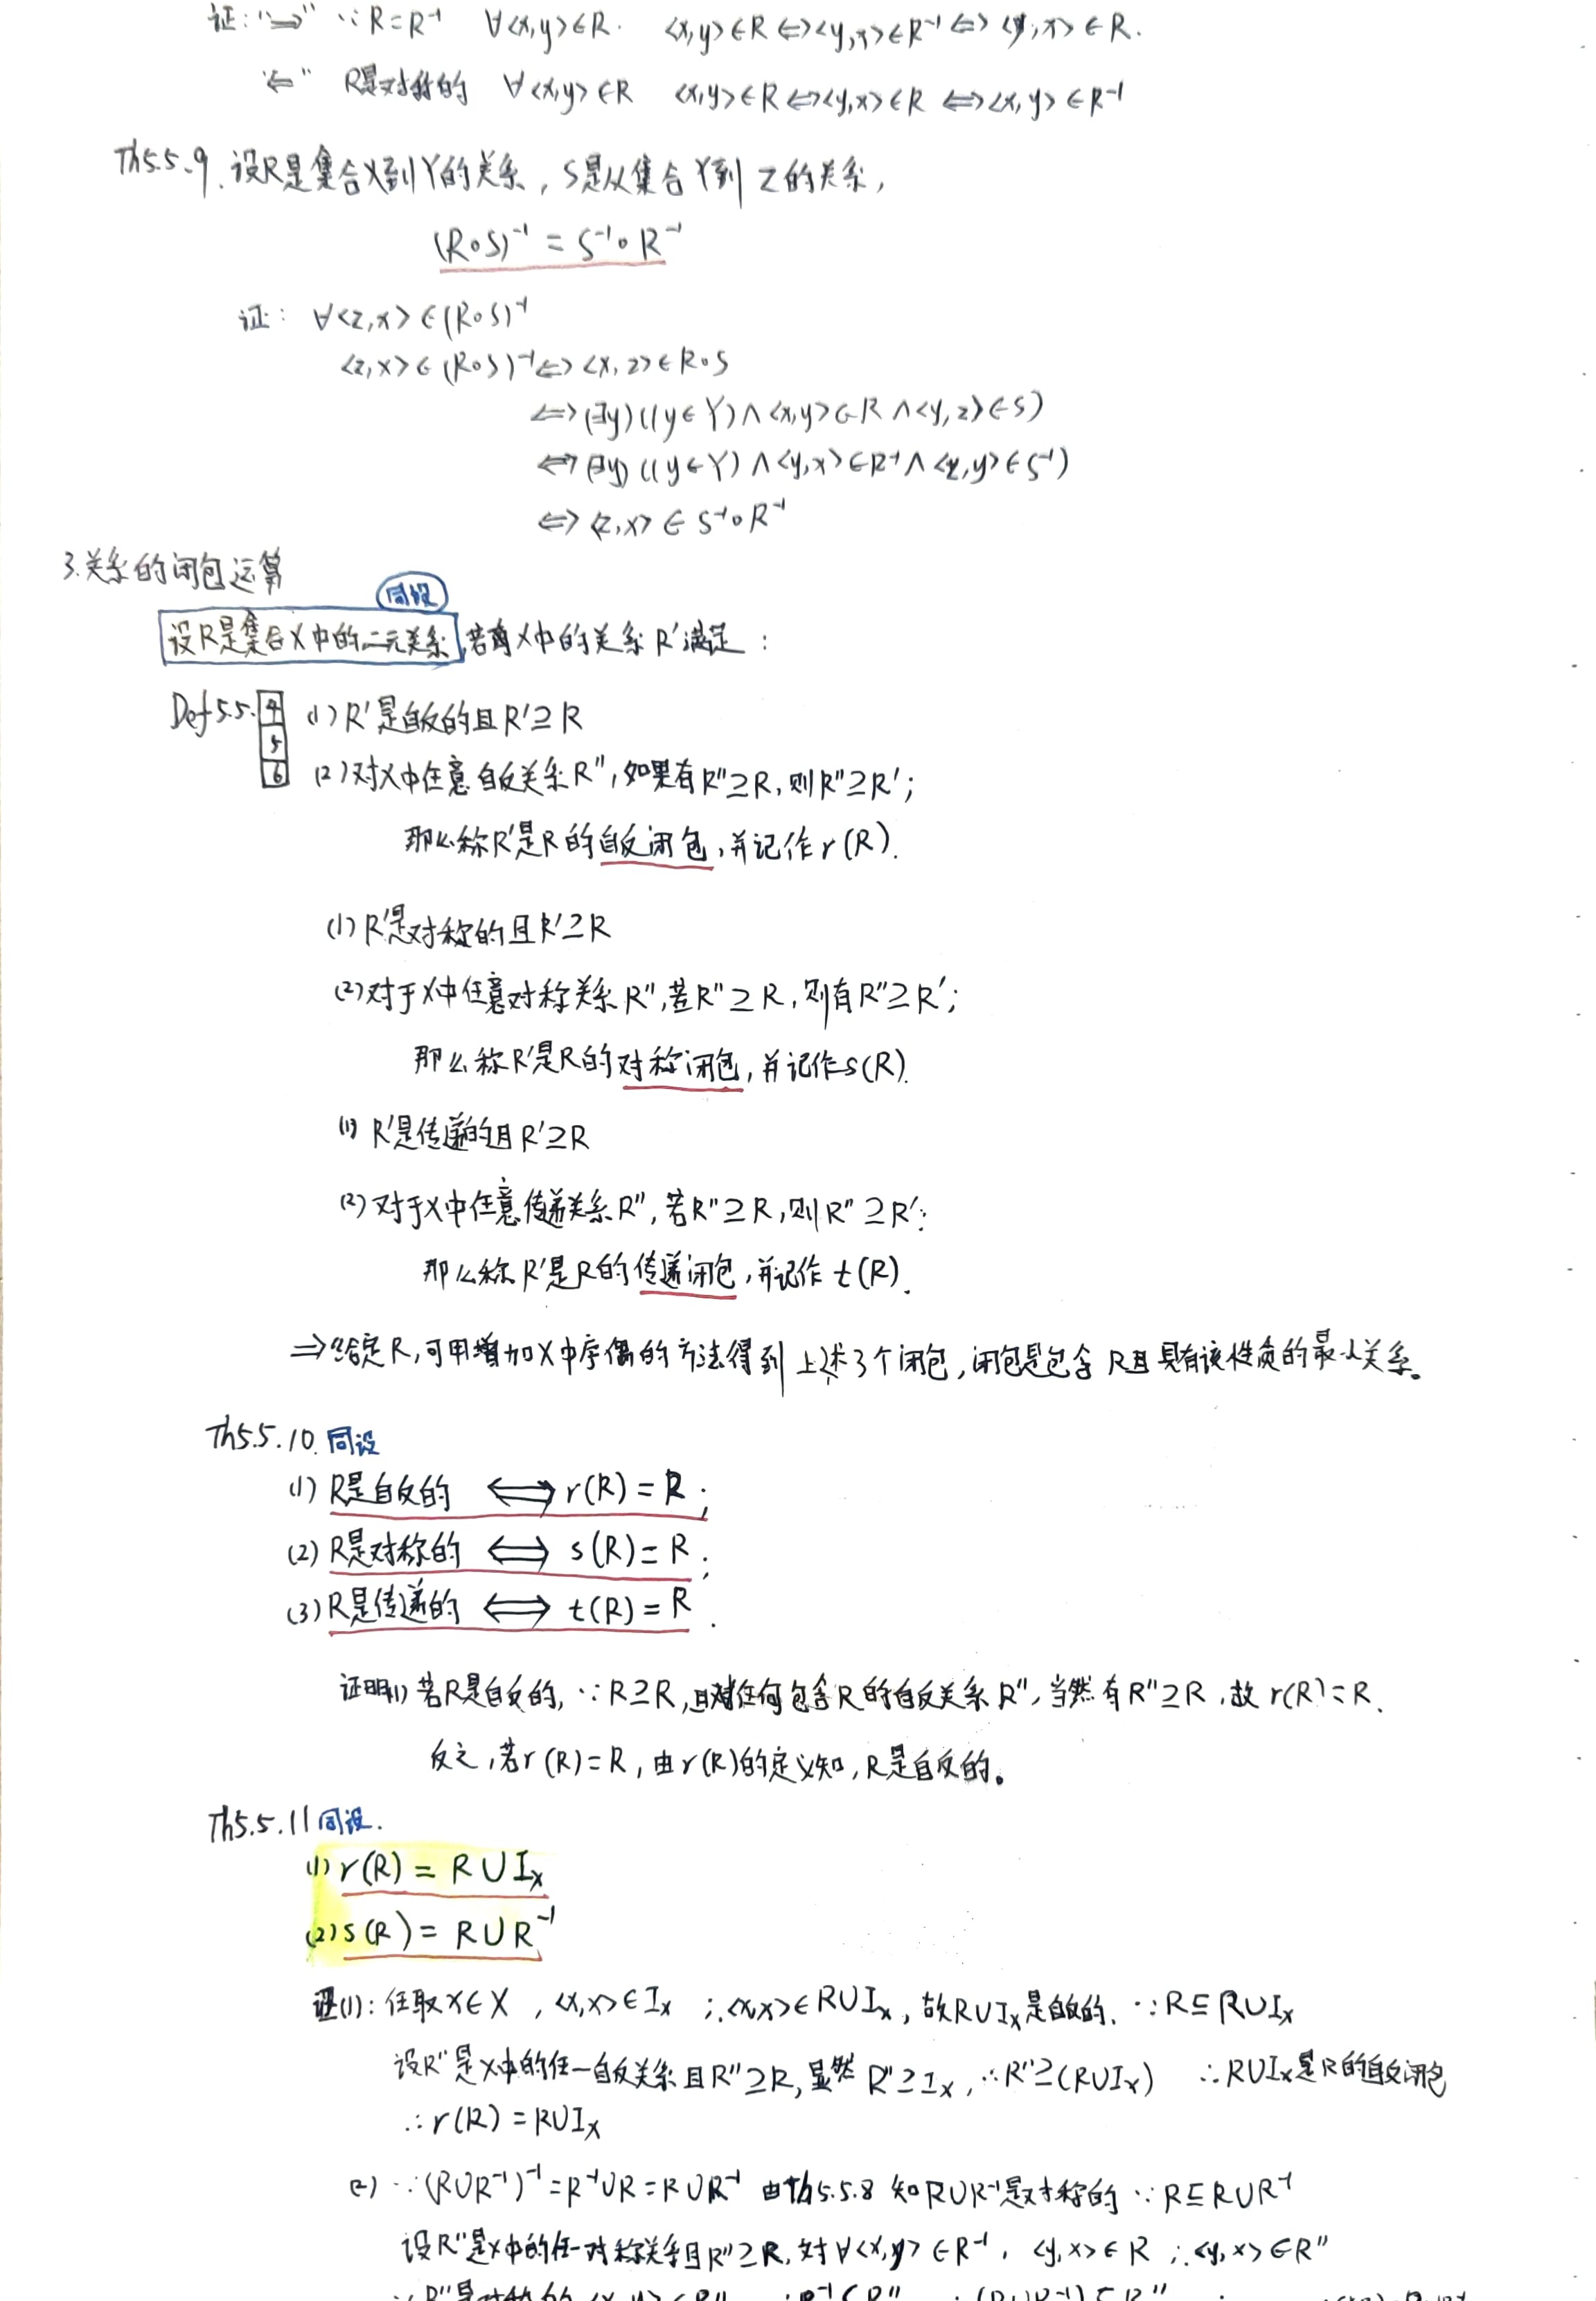 证："⇒" ∵R=R⁻¹ ∀<x,y>∈R. <x,y>∈R⇔<y,x>∈R⁻¹⇔<y,x>∈R.
"⇐" R是对称的 ∀<x,y>∈R <x,y>∈R⇔<y,x>∈R⇔<x,y>∈R⁻¹
Th5.5.9. 设R是集合X到Y的关系，S是从集合Y到Z的关系，
(R∘S)⁻¹ = S⁻¹∘R⁻¹
证：∀<z,x>∈(R∘S)⁻¹
<z,x>∈(R∘S)⁻¹⇔<x,z>∈R∘S
⇔(∃y)((y∈Y)∧<x,y>∈R∧<y,z>∈S)
⇔(∃y)((y∈Y)∧<y,x>∈R⁻¹∧<z,y>∈S⁻¹)
⇔<z,x>∈S⁻¹∘R⁻¹
3.关系的闭包运算
同设
设R是集合X中的二元关系，若有X中的关系R'满足：
Def5.5.4 (1) R'是自反的且R'⊇R
5
6 (2)对X中任意自反关系R'',如果有R''⊇R,则R''⊇R';
那么称R'是R的自反闭包,并记作r(R).
(1) R'是对称的且R'⊇R
(2)对于X中任意对称关系R'',若R''⊇R,则有R''⊇R';
那么称R'是R的对称闭包,并记作s(R).
(1) R'是传递的且R'⊇R
(2)对于X中任意传递关系R'',若R''⊇R,则R''⊇R';
那么称R'是R的传递闭包,并记作t(R).
⇒给定R,可用增加X中序偶的方法得到上述3个闭包,闭包是包含R且具有该性质的最小关系。
Th5.5.10.同设
(1) R是自反的 ⇔ r(R)=R;
(2) R是对称的 ⇔ s(R)=R;
(3) R是传递的 ⇔ t(R)=R.
证明(1)若R是自反的,∵R⊇R,且对任何包含R的自反关系R'',当然有R''⊇R,故r(R)=R.
反之,若r(R)=R,由r(R)的定义知,R是自反的。
Th5.5.11同设.
(1) r(R)=R∪Iₓ
(2) s(R)=R∪R⁻¹
证(1)：任取x∈X,<x,x>∈Iₓ ∴<x,x>∈R∪Iₓ,故R∪Iₓ是自反的. ∵R⊆R∪Iₓ
设R''是X中的任一自反关系且R''⊇R,显然R''⊇Iₓ,∴R''⊇(R∪Iₓ) ∴R∪Iₓ是R的自反闭包
∴r(R)=R∪Iₓ
(2) ∵(R∪R⁻¹)⁻¹=R⁻¹∪R=R∪R⁻¹ 由Th5.5.8知R∪R⁻¹是对称的 ∵R⊆R∪R⁻¹
设R''是X中的任一对称关系且R''⊇R,对∀<x,y>∈R⁻¹,<y,x>∈R ∴<y,x>∈R''